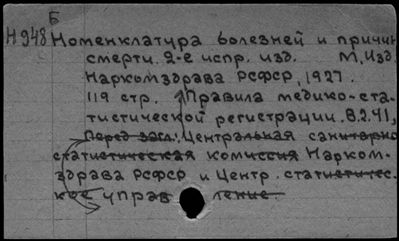 Б
Н948 Номенклатура болезней и причин
смерти. 2-е испр. изд. М, Изд.
Наркомздрава РСФСР, 1927.
119 стр. Правила медико-ста-
тистической регистрации. 8.2.41,
Перед загл.: Центральная санитарно
статистическая комиссия Нарком-
здрава РСФСР и Центр. статистичес.
кое управление.